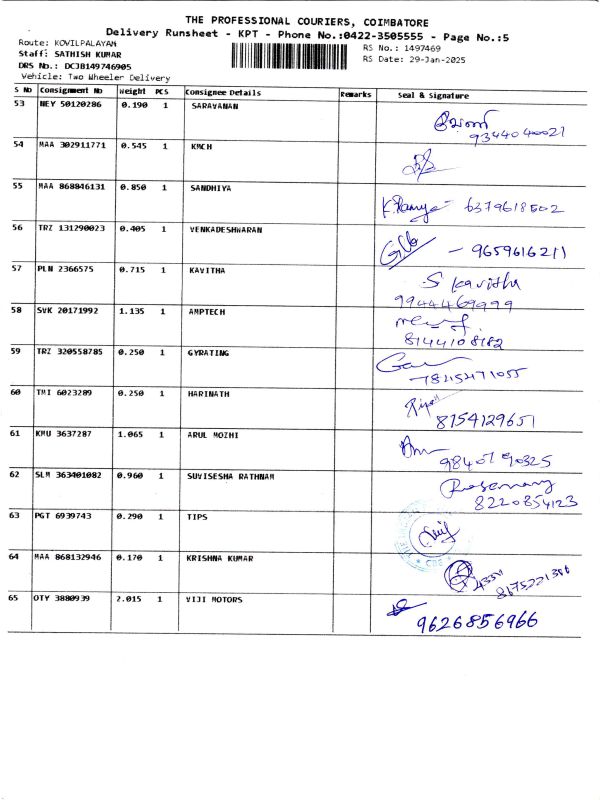 THE PROFESSIONAL COURIERS, COIMBATORE
Delivery Runsheet - KPT - Phone No.:0422-3505555 - Page No.:5
Route: KOVILPALAYAM
RS No.: 1497469
Staff: SATHISH KUMAR
RS Date: 29-Jan-2025
DRS No.: DCJB149746905
Vehicle: Two Wheeler Delivery
S No Consignment No Weight PCS Consignee Details Remarks Seal & Signature
53 NEY 50120286 0.190 1 SARAVANAN
9344040021
54 MAA 302911771 0.545 1 KMCH
55 MAA 868846131 0.850 1 SANDHIYA
6379618502
56 TRZ 131290023 0.405 1 VENKADESHWARAN
- 9659616211
57 PLN 2366575 0.715 1 KAVITHA S Kavitha
9944469999
58 SVK 20171992 1.135 1 AMPTECH
8144108182
59 TRZ 320558785 0.250 1 GYRATING
60 TMI 6023289 0.250 1 HARINATH
8754129651
61 KMU 3637287 1.065 1 ARUL MOZHI
62 SLM 363401082 0.960 1 SUVISESHA RATHNAM Rosemary
8220854123
63 PGT 6939743 0.290 1 TIPS
CBE
64 MAA 868132946 0.170 1 KRISHNA KUMAR
65 OTY 3880939 2.015 1 VIJI MOTORS
9626856966